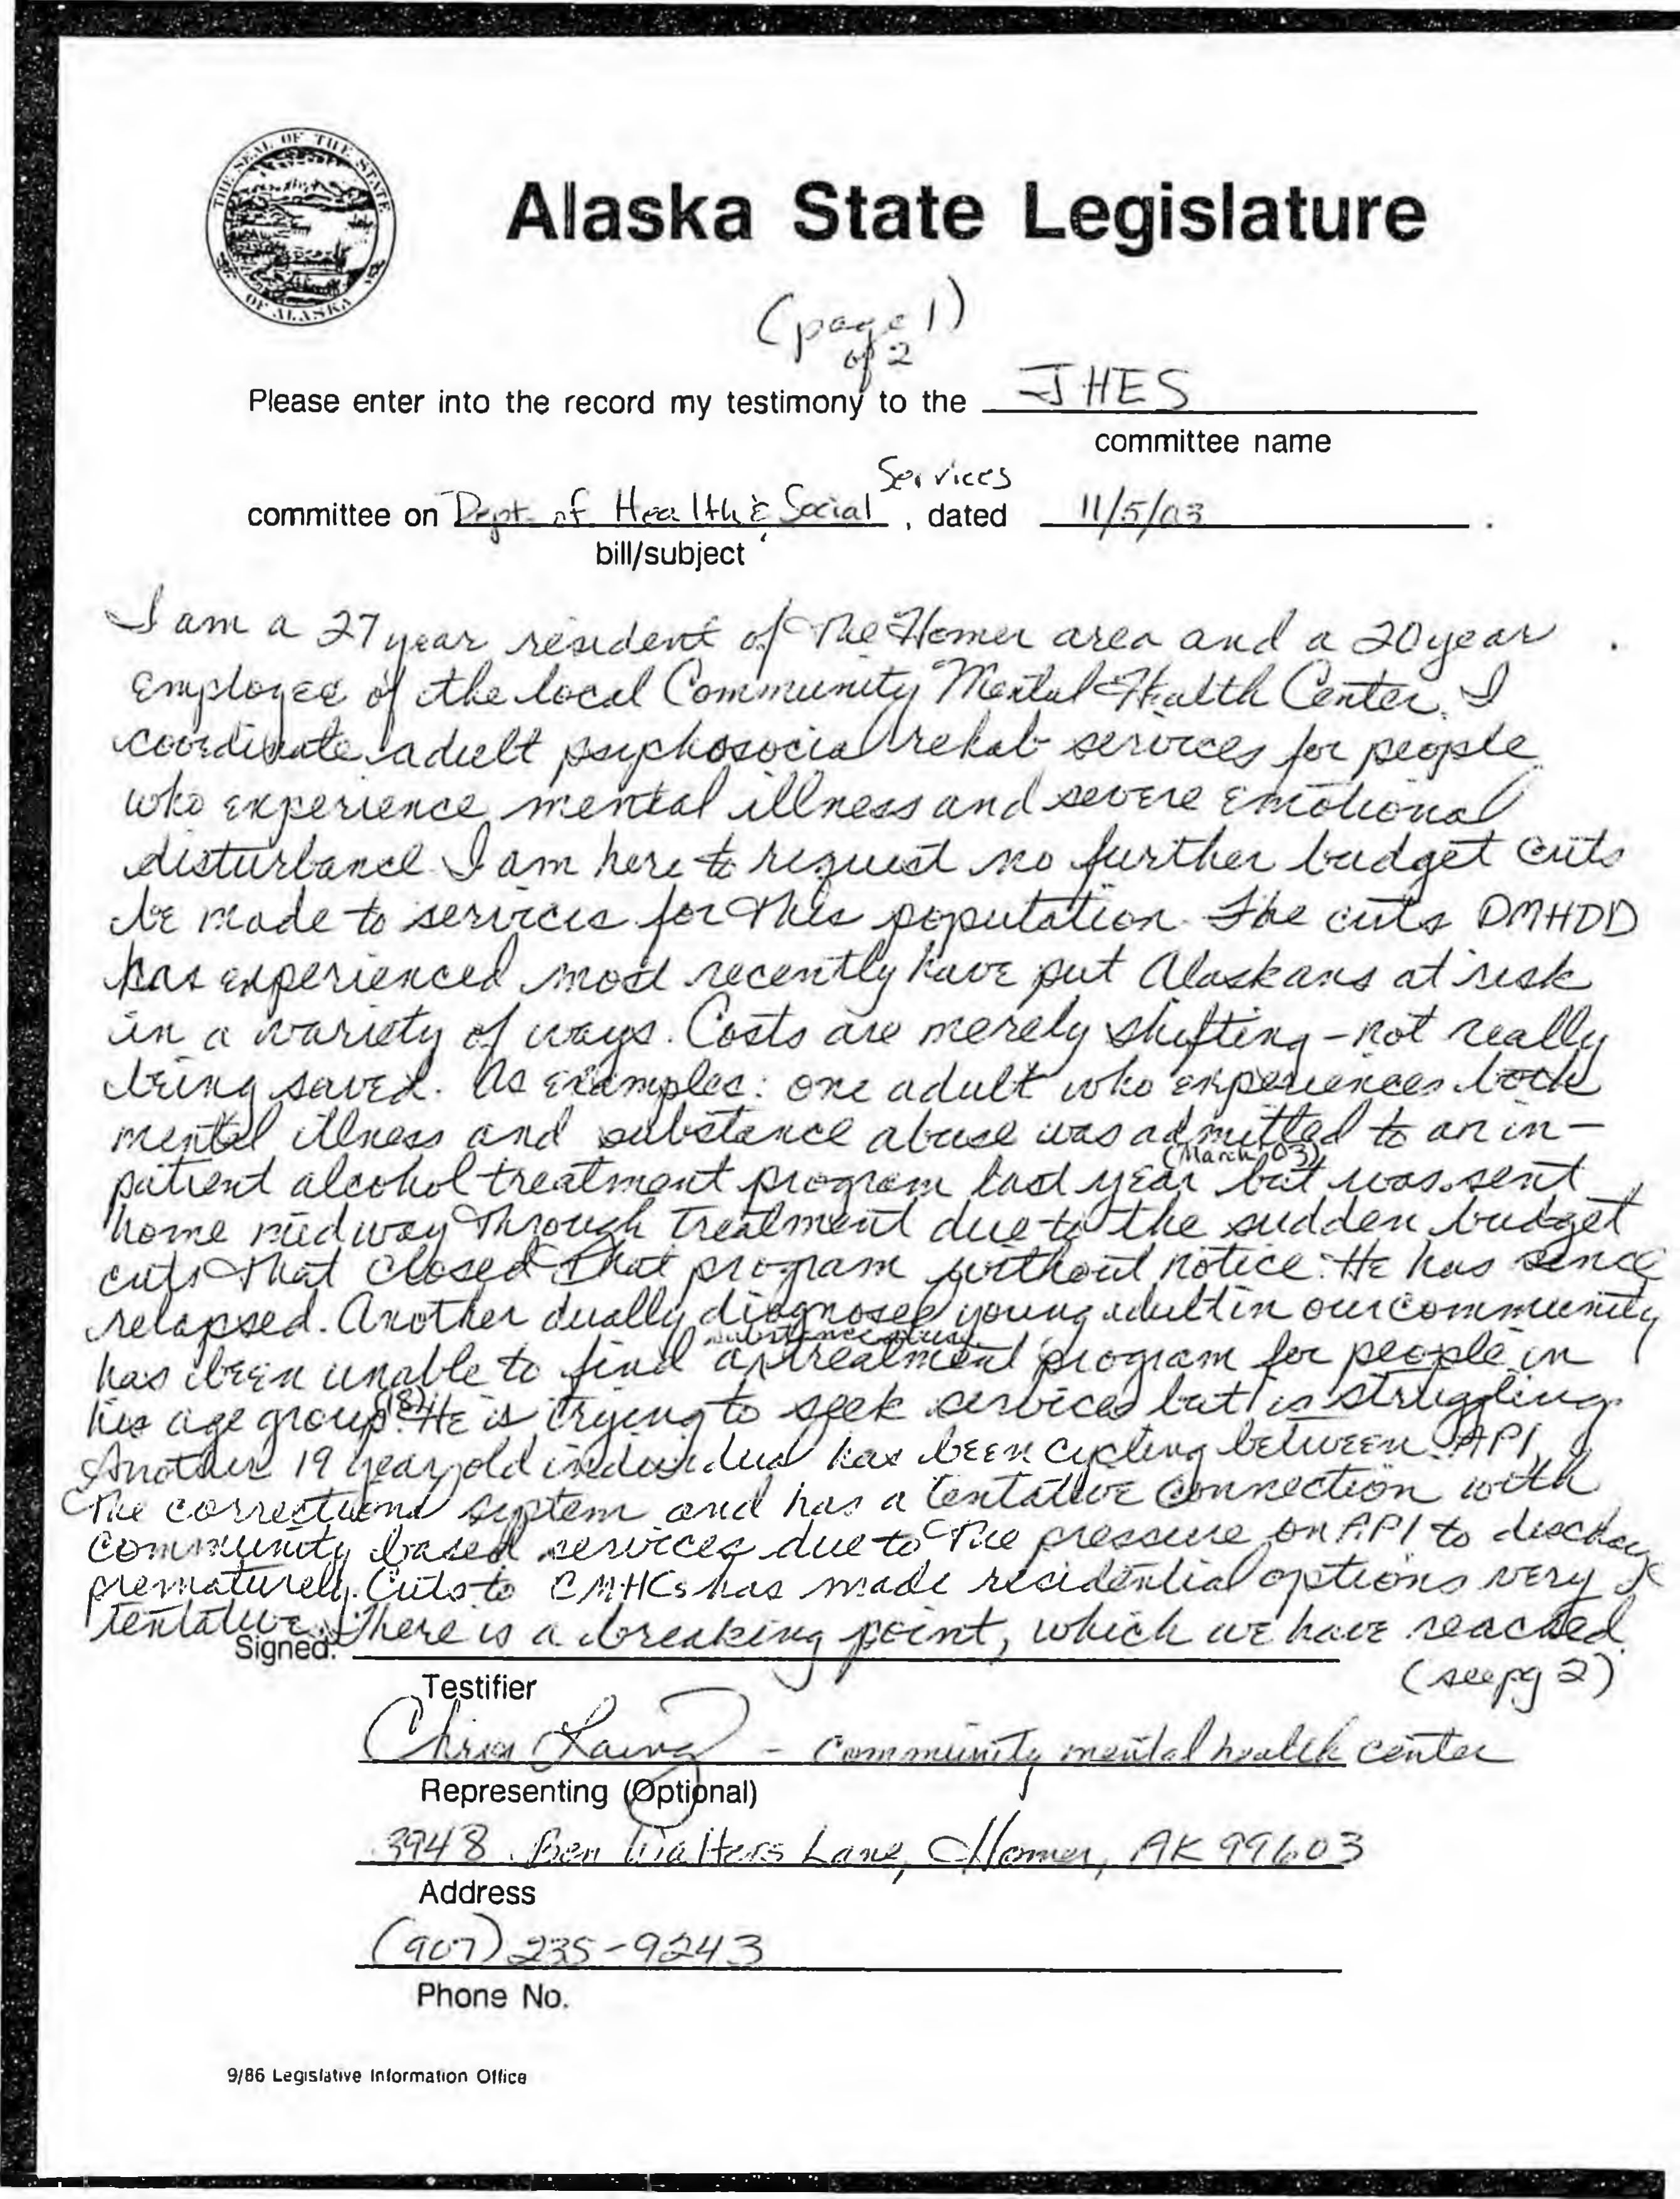 THE SEAL OF THE STATE OF ALASKA
Alaska State Legislature
(page 1)
of 2
Please enter into the record my testimony to the JHES
committee name
Services
committee on Dept. of Health & Social, dated 11/5/03.
bill/subject
I am a 27 year resident of the Homer area and a 20 year
employee of the local Community Mental Health Center. I
coordinate adult psychosocial rehab services for people
who experience mental illness and severe emotional
disturbance. I am here to request no further budget cuts
be made to services for this population. The cuts DMHDD
has experienced most recently have put Alaskans at risk
in a variety of ways. Costs are merely shifting - not really
being saved. As examples: one adult who experiences both
mental illness and substance abuse was admitted to an in-
(March 03)
patient alcohol treatment program last year but was sent
home midway through treatment due to the sudden budget
cuts that closed that program without notice. He has since
relapsed. Another dually diagnosed young adult in our community
substance abuse
has been unable to find a treatment program for people in
his age group (18). He is trying to seek services but is struggling.
Another 19 year old individual has been cycling between API,
the correctional system and has a tentative connection with
community based services due to the pressure on API to discharge
prematurely. Cuts to CMHCs has made residential options very
tentative. There is a breaking point, which we have reached.
Signed:
(see pg 2)
Testifier
Chris - Community mental health center
Representing (Optional)
3948 Ben Walters Lane, Homer, AK 99603
Address
(907) 235-9243
Phone No.
9/86 Legislative Information Office